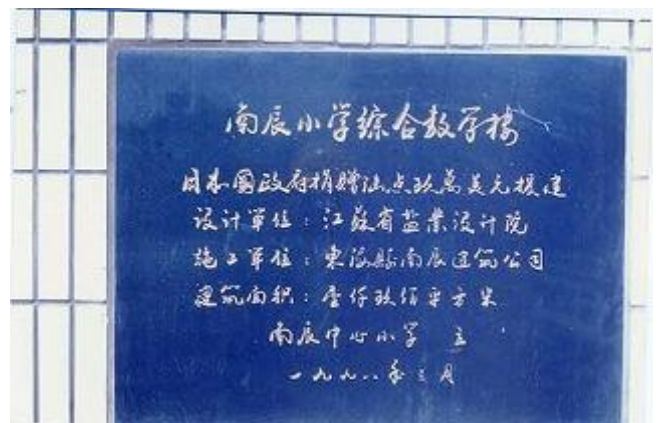 南辰小学综合教学楼
日本國政府捐赠汕点玖萬美元援建
设计單位：江苏省盐業设计院
施工單位：東海縣南辰建筑公司
建筑面积：壹仟玖佰平方米
南辰中心小学 立
一九九八年三月